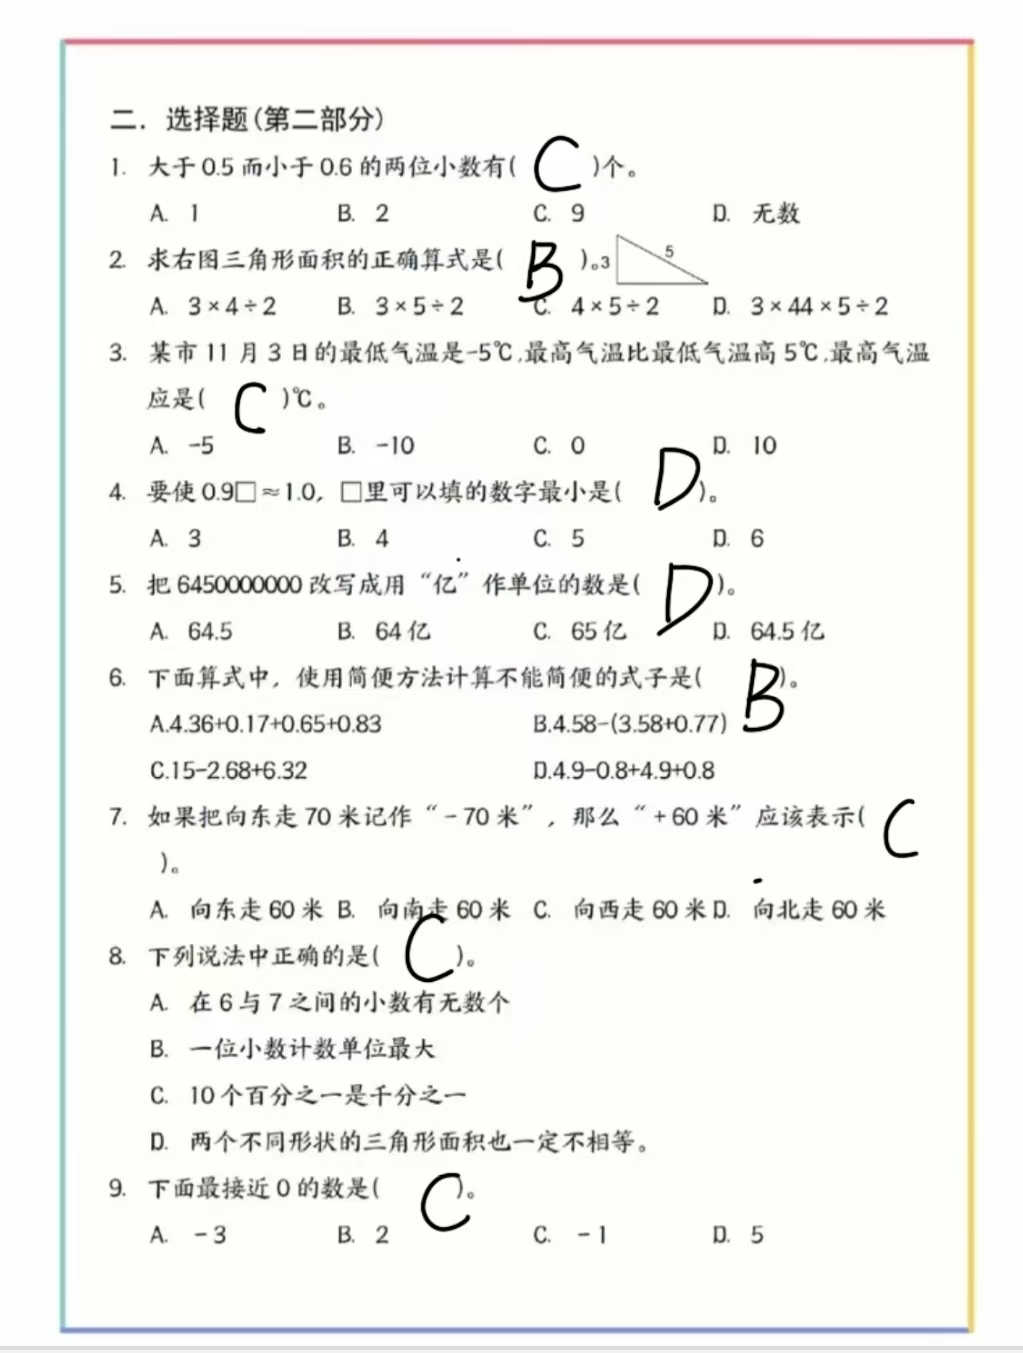 二. 选择题(第二部分)
1. 大于0.5而小于0.6的两位小数有( C )个。
A. 1 B. 2 C. 9 D. 无数
2. 求右图三角形面积的正确算式是( B )。 3 5
A. 3×4÷2 B. 3×5÷2 C. 4×5÷2 D. 3×44×5÷2
3. 某市11月3日的最低气温是-5℃,最高气温比最低气温高5℃,最高气温
应是( C )℃。
A. -5 B. -10 C. 0 D. 10
4. 要使0.9□≈1.0, □里可以填的数字最小是( D )。
A. 3 B. 4 C. 5 D. 6
5. 把6450000000改写成用“亿”作单位的数是( D )。
A. 64.5 B. 64亿 C. 65亿 D. 64.5亿
6. 下面算式中, 使用简便方法计算不能简便的式子是( B )。
A.4.36+0.17+0.65+0.83 B.4.58-(3.58+0.77)
C.15-2.68+6.32 D.4.9-0.8+4.9+0.8
7. 如果把向东走70米记作“-70米”, 那么“+60米”应该表示( C
)。
A. 向东走60米 B. 向南走60米 C. 向西走60米 D. 向北走60米
8. 下列说法中正确的是( C )。
A. 在6与7之间的小数有无数个
B. 一位小数计数单位最大
C. 10个百分之一是千分之一
D. 两个不同形状的三角形面积也一定不相等。
9. 下面最接近0的数是( C )。
A. -3 B. 2 C. -1 D. 5